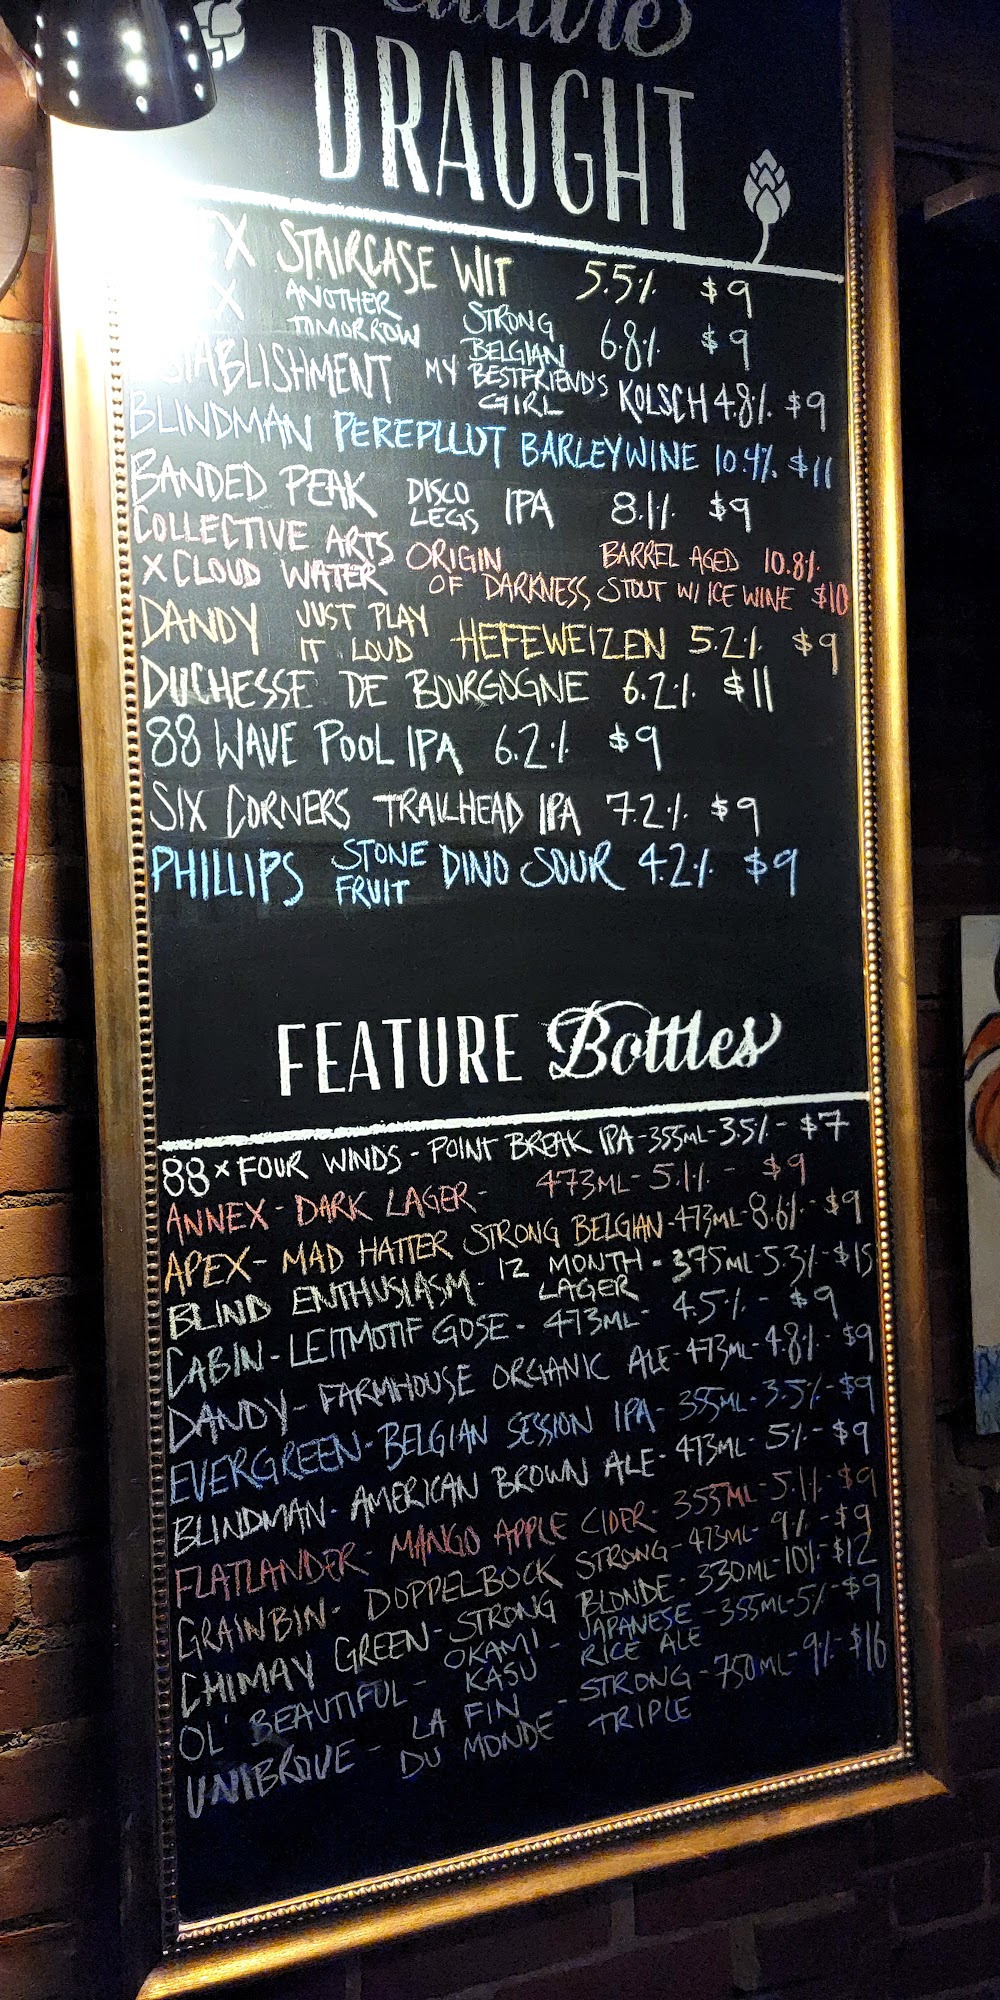 DRAUGHT
X STAIRCASE WIT 5.5% $9
X ANOTHER TOMORROW STRONG BELGIAN 6.8% $9
ESTABLISHMENT MY BESTFRIEND'S GIRL KOLSCH 4.8% $9
BLINDMAN PEREPLLUT BARLEYWINE 10.4% $11
BANDED PEAK DISCO LEGS IPA 8.1% $9
COLLECTIVE ARTS ORIGIN BARREL AGED 10.8%
X CLOUD WATER OF DARKNESS STOUT W/ ICE WINE $10
DANDY JUST PLAY IT LOUD HEFEWEIZEN 5.2% $9
DUCHESSE DE BOURGOGNE 6.2% $11
88 WAVE POOL IPA 6.2% $9
SIX CORNERS TRAILHEAD IPA 7.2% $9
PHILLIPS STONE FRUIT DINO SOUR 4.2% $9
FEATURE Bottles
88 x FOUR WINDS - POINT BREAK IPA - 355ML - 3.5% - $7
ANNEX - DARK LAGER - 473ML - 5.1% - $9
APEX - MAD HATTER STRONG BELGIAN - 473ML - 8.6% - $9
BLIND ENTHUSIASM - 12 MONTH LAGER - 375ML - 5.3% - $15
CABIN - LEITMOTIF GOSE - 473ML - 4.5% - $9
DANDY - FARMHOUSE ORGANIC ALE - 473ML - 4.8% - $9
EVERGREEN - BELGIAN SESSION IPA - 355ML - 3.5% - $9
BLINDMAN - AMERICAN BROWN ALE - 473ML - 5% - $9
FLATLANDER - MANGO APPLE CIDER - 355ML - 5.1% - $9
GRAINBIN - DOPPELBOCK STRONG - 473ML - 9% - $9
CHIMAY GREEN - STRONG BLONDE - 330ML - 10% - $12
OL' BEAUTIFUL - OKAMI KASU - JAPANESE RICE ALE - 355ML - 5% - $9
UNIBROUE - LA FIN DU MONDE - STRONG TRIPLE - 750ML - 9% - $16